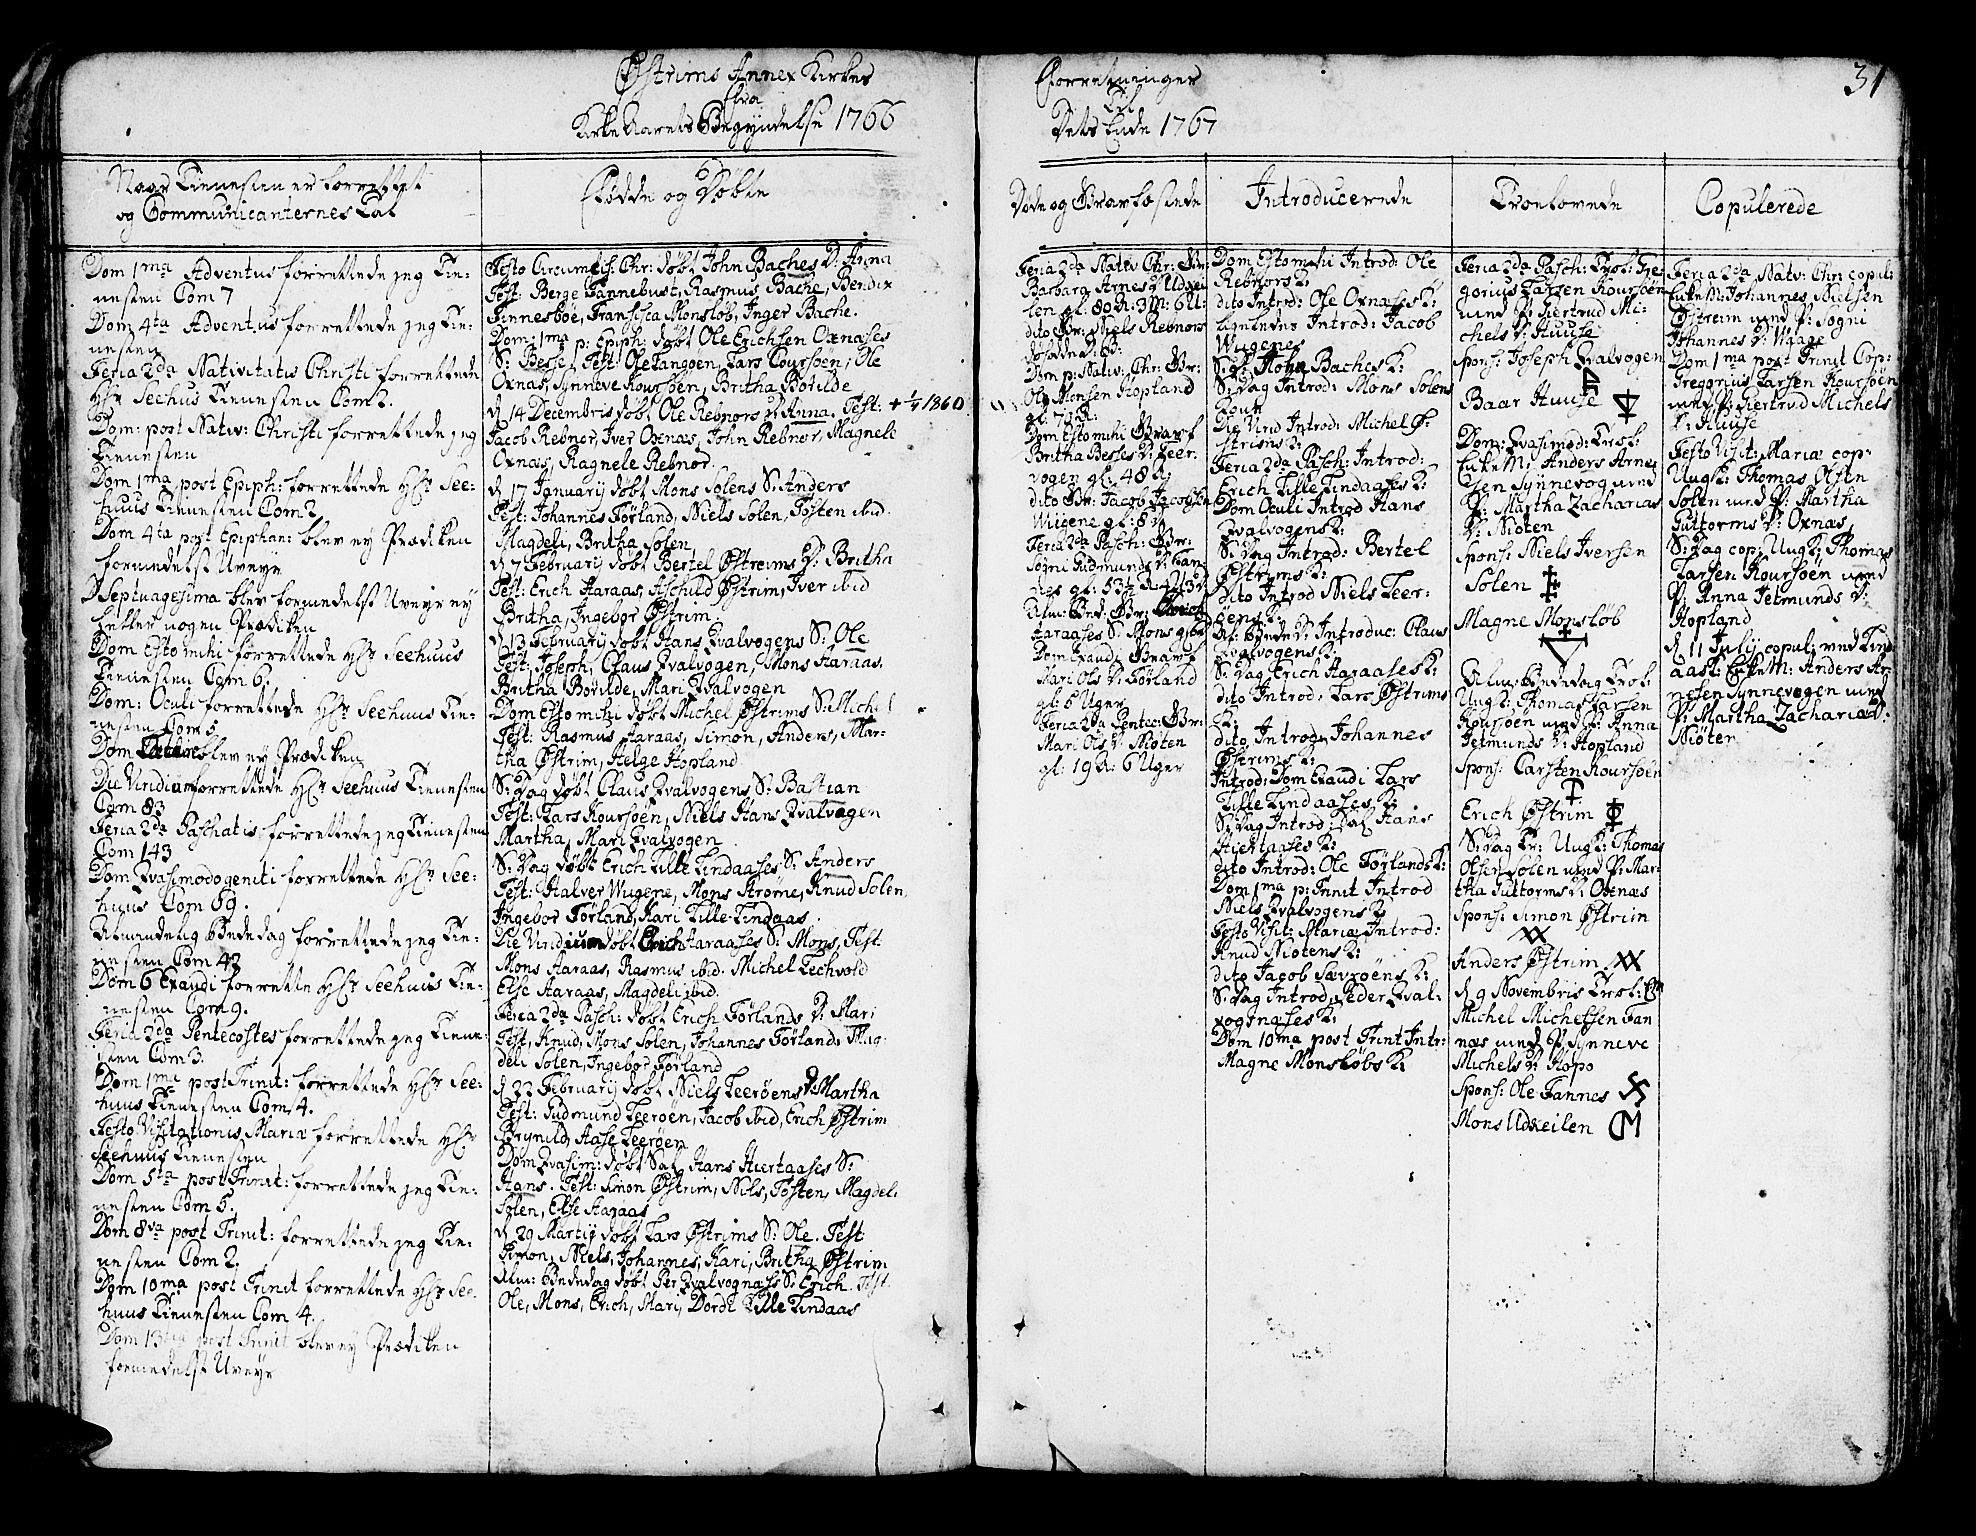 Østrims Annex Kirkes
fra
Kirke Aarets Begyndelse 1766
Forretninger
Til
Dets Ende 1767
31
Naar Tienesten er forrettet
og Communicanternes Tal
Dom 1ma Adventus forrettede jeg Tie-
nesten Com 7
Dom 4ta Adventus forrettede jeg Tie-
nesten
Feria 2da Nativitatis Christi forrettede
Hr Seehus Tienesten Com 2.
Dom: post Nativ: Christi forrettede jeg
Tienesten
Dom 1ma post Epiph: forrettede Hr See-
huus Tienesten Com 2
Dom 4ta post Epiphan: blev ey Prædiken
formedelst Uveyr
D Septuagesima blev formedelst Uveyr ey
heller nogen Prædiken
Dom Estomihi forrettede Hr Seehuus
Tienesten Com 6.
Dom: Oculi forrettede Hr Seehuus Tie-
nesten Com 5
Dom Lætare blev ey Prædiken
Die Viridium forrettede Hr Seehuus Tienesten
Com 83
Feria 2da Paschatis forrettede jeg Tienesten
Com 143
Dom Qvasimodogeniti forrettede Hr See-
huus Com 69.
Almindelig Bededag forrettede jeg Tie-
nesten Com 42
Dom 6 Exaudi forrette Hr Seehuus Tie-
nesten Com 9.
Feria 2da Pentecostes forrettede jeg Tiene-
sten Com 3.
Dom 1ma post Trinit: forrettede Hr See-
huus Tienesten Com 4.
Festo Visitationis Mariæ forrettede Hr
Seehuus Tienesten
Dom 5ta post Trinit: forrettede jeg Tie-
nesten Com 5.
Dom 8va post Trinit: forrettede jeg Tie-
nesten Com 2.
Dom 10ma post Trinit forrettede Hr See
huus Tienesten Com 4.
Dom 13tia post Trinit blev ey Prædiken
formedelst Uveyr
Fødde og Døbte
Festo Circumcis: Chr: døbt John Baches D: Anna
Test: Berge Fannebust, Rasmus Bache, Bendix
Finnesboe, Fransisca Monsløb, Inger Bache.
Dom: 1ma p: Epiph: døbt Ole Erichsen Oxnases
S: Besse, Test Ole Langøen, Lars Coursøen, Ole
Oxnas, Synneve Koursøen, Britha Børilde
d 14 Decembris døbt Ole Rebnors D Anna. Test: + 1/4 1860
Jacob Rebnor, Iver Oxnas, John Rebnor, Magnele
Oxnas, Ragnele Rebnor.
d 17 Januarij døbt Mons Solens S: Anders
Test: Johannes Førland, Niels Solen, Tosten ibid.
Magdeli, Britha Solen
d 7 Februarij døbt Bertel Østreims D: Britha
Test: Erich Haraas, Aschild Østrim, Iver ibid
Britha, Ingebor Østrim.
d 13 Februarij døbt Hans Qvalvogens S: Ole
Test: Joseph, Claus Qvalvogen, Mons Haraas.
Britha Børilde, Mari Qvalvogen
Dom Estomihi døbt Michel Østrims S: Michel
Test: Rasmus Haraas, Simon, Anders, Mar-
tha Østrim, Helge Hopland
S: Dag døbt Claus Qvalvogens S: Bastian
Test: Lars Koursøen, Niels Hans Qvalvogen
Martha, Mari Qvalvogen
S: Dag døbt Erich Lille Lindaases S: Anders
Test: Halver Wugene, Mons Strøme, Knud Solen,
Ingebor Førland, Kari Lille Lindaas.
Die Viridium døbt Erich Haraases S: Mons, Test:
Mons Haraas, Rasmus ibid. Michel Techvold
Else Haraas, Magdeli ibid.
Feria 2da Pasch: døbt Erich Førlands D: Mari
Test, Knud, Mons Solen, Johannes Førland, Mag-
deli Solen, Ingebor Førland
d 22 Februarij døbt Niels Leerøens D: Martha
Test: Gudmund Leerøen, Jacob ibid, Erich Østrim
Brynild, Aase Leerøen
Dom Qvasim: døbt Sal Hans Hiertaases S:
Hans. Test: Simon Østrim, Nils, Tosten, Magdeli
Solen, Else Haraas
d 29 Martij døbt Lars Østrims S: Ole. Test
Simon, Niels, Johannes, Kari, Britha Østrim
Alm: Bededag døbt Per Qvalvognases S: Erich. Test
Ole, Mons, Erich, Mari, Dordi Lille Lindaas
Døde og Gravfæstede
Feria 2da Nativ Chr: Gr:
Barbara Arnes D: Udkei
len gl. 80 A: 3 M: 6 U:
dito Gr: Niels Rebnors
Dom p: Nativ: Chr: Gr:
Ole Monsen Hopland
gl: 7 A:
Dom Estomihi Gravf
Britha Besses D: Leer-
vogen gl: 48 A:
dito Gr: Jacob Jacobsen
Wugene gl: 8 A
Feria 2da Pasch: Gr:
Sogni Gudmunds D: Fan
nes gl: 33
Alm: Bed: Gr: Erich
Haraases S: Mons gl:
Dom Exaudi Gravf
Mari Ols D: Førland
gl: 6 Uger
Feria 2da Pentec: Gr:
Mari Ols D: Niøten
gl: 19 A: 6 Uger
Introducerede
Dom Estomihi Introd: Ole
Rebnors K:
dito Introd: Ole Oxnases K:
ligeledes Introd: Jacob
Wugenes
S: D: John Baches K:
S: Dag Introd: Mons Solens
Kone
Die Virid Introd: Michel Ø-
strims K:
Feria 2da Pasch: Introd:
Erich Lille Lindaases K:
Dom Oculi Introd Hans
Qvalvogens K:
S: Dag Introd: Bertel
Østrims K:
dito Introd Niels Leer-
øens K:
Al: Bede D: Introduc: Claus
Qvalvogens K:
S: Dag Erich Haraases K:
dito Introd: Lars Østrims
K:
dito Introd: Johannes
Østrims K:
Introd: Dom Exaudi Lars
Lille Lindaases K:
S: Dag Introd: Sal Hans
Hiertaases K:
dito Introd: Ole Førlands K:
Dom 1ma p: Trinit Introd
Niels Qvalvogens K:
Festo Visit: Mariæ Introd:
Knud Niøtens K:
dito Jacob Sævrøens K:
S: Dag Introd: Peder Qval-
vognases K:
Dom 10ma post Trinit Intr:
Magne Monsløbs K:
Troelovede
Feria 2da Pasch: Trol: Gre-
gorius Larsen Koursøen
med P: Giertrud Mi-
chels D: Huuse
Spons: Joseph Qvalvogen
Baar Huuse
Dom: Qvasimod: Trol:
Enke M: Anders Arne-
sen Synnevog med
P: Martha Zacharias
D: Niøten
Spons: Niels Iversen
Solen
Magne Monsløb
Alm: Bededag Trol:
Ung K: Thomas Larsen
Koursøen med P: Anna
Jetmunds D: Hopland
Spons: Carsten Koursøen
Erich Østrim
S: Dag Tr: Ung K: Thomas
Olsen Solen med P: Mar-
tha Guttorms D: Oxnæs
Spons: Simon Østrim
Anders Østrim
d 9 Novembris Trol:
Michel Michelsen Fan
næs med P Synneve
Michels D: Hopo
Spons: Ole Fannes
Mons Udkeilen
Copulerede
Feria 2da Nativ: Chri copul:
Enke M: Johannes Nielsen
Østreim med P: Sogni
Johannes D: Waage
Dom 1ma post Trinit Cop:
Gregorius Larsen Koursøen
med P: Giertrud Michels
D: Huuse
Festo Visit: Mariæ cop:
Ung K: Thomas Olsen
Solen med P: Martha
Guttorms D: Oxnas
S: Dag cop: Ung K: Thomas
Larsen Koursøen med
P: Anna Jetmunds D:
Hopland
d 11 July copul: ved Lind
aas: Enke M: Anders Ar
nesen Synnevogen med
P: Martha Zacharia D:
Niøten